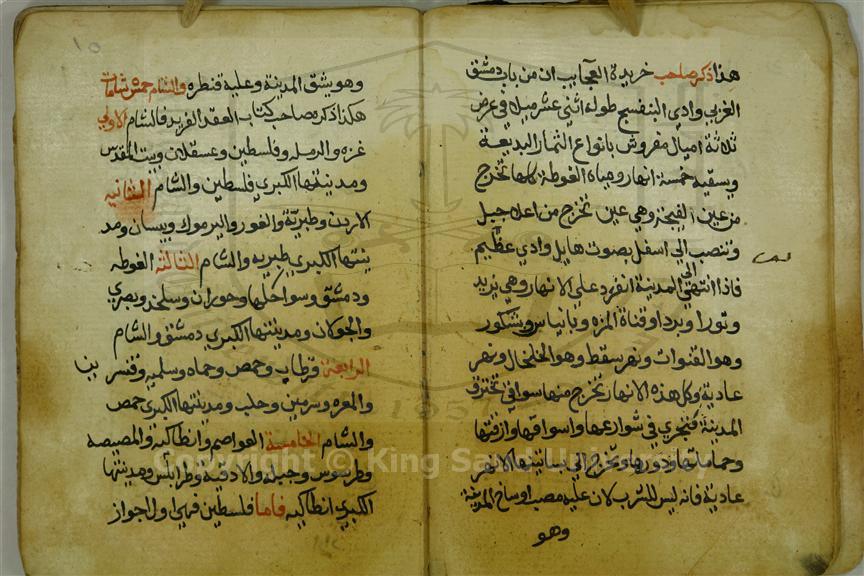 هذا ذكر صاحب خريدة العجايب ان من باب دمشق
الغربي وادي البنفسج طوله اثني عشر ميلا في عرض
ثلاثة اميال مفروش بانواع الثمار البديعة
ويسقيه خمسة انهار ومياه الغوطة كلها تخرج
من عين الفيجة وهي عين تخرج من اعلا جبل
وتنصب الى اسفل بصوت هايل ودوي عظيم
فاذا انتهى الى المدينة انفرد على الانهار وهي يزيد
وتورا وبردا وقناة المزه وبانياس ويشكور
وهو القنوات ونهر سقط وهو الخلخال ونهر
عادية وكل هذه الانهار تخرج منها سواقي تخترق
المدينة فتجري في شوارعها واسواقها وازقتها
وحماماتها ودورها وتخرج الى بساتينها الا نهر
عادية فانه ليس للشرب لان عليه مصب اوساخ المدينة
وهو
١٥
وهو يشق المدينة وعليه قنطره والشام خمس شامات
هكذا ذكره صاحب كتاب العقد الفريد فالشام الاولي
غزه والرمله وفلسطين وعسقلان وبيت المقدس
ومدينتها الكبري فلسطين والشام الثانيه
الاردن وطبرية والغور واليرموك وبيسان ومد
ينتها الكبري طبريه والشام الثالثه الغوطه
ودمشق وسواحلها وحوران وسلخد وبصري
والجولان ومدينتها الكبري دمشق والشام
الرابعة وحمص وحماه وسلميه وقنسرين
والمعره وسرمين وحلب ومدينتها الكبري حمص
والشام الخامسة العواصم وانطاكية والمصيصه
وطرسوس وجبله والادقيه وطرابلس ومدينتها
الكبري انطاكيه فاما فلسطين فهي اول اجواز
Copyright © King Saud University
1957